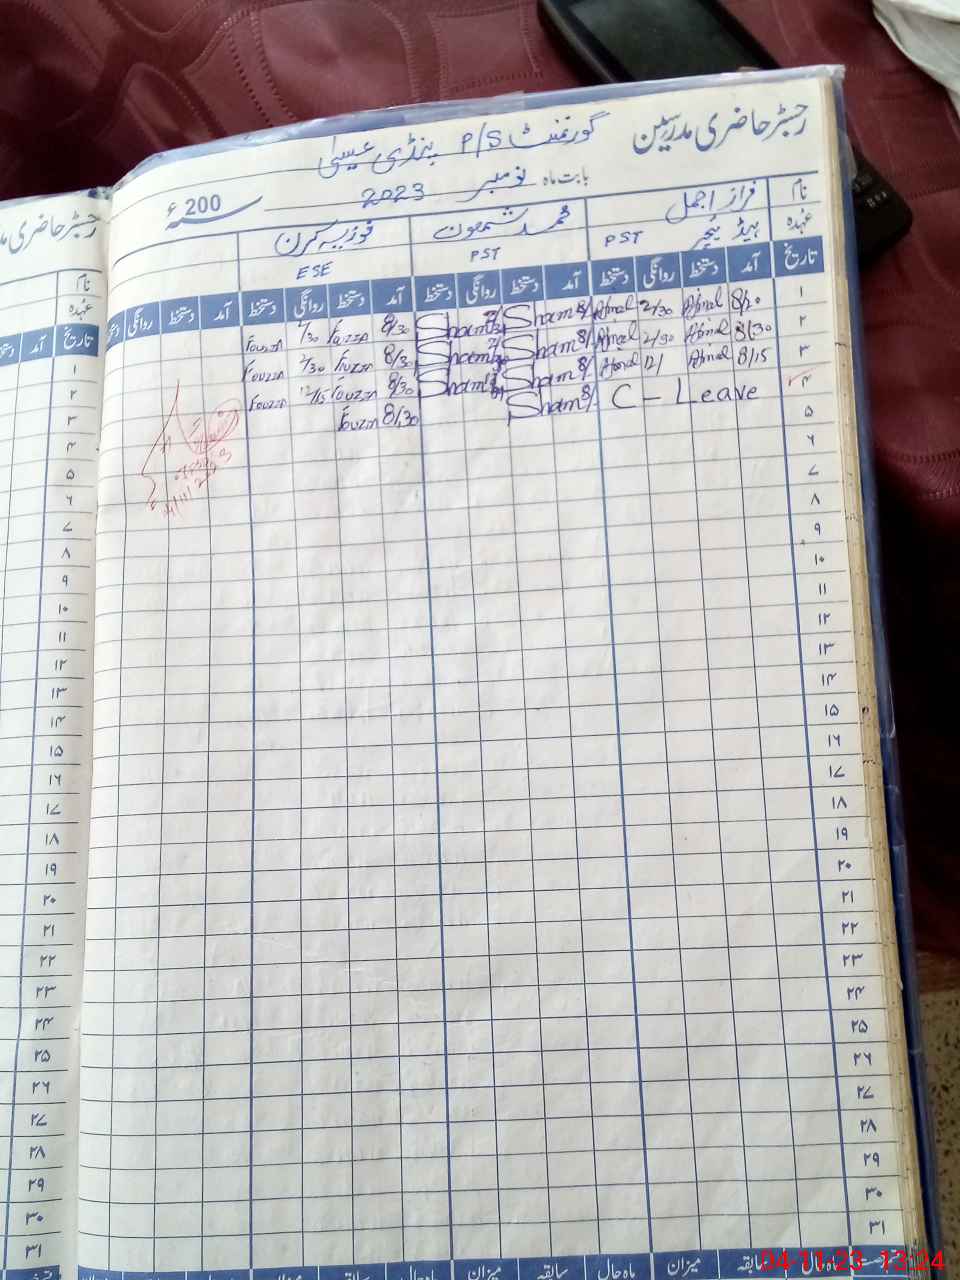 رجسٹر حاضری مدرسین گورنمنٹ P/S پنڈی عیسیٰ
بابت ماہ نومبر 2023 200ء
نام فراز اجمل محمد شمعون فوزیہ کرن
عہدہ ہیڈ ٹیچر PST PST ESE
تاریخ آمد دستخط روانگی دستخط آمد دستخط روانگی دستخط آمد دستخط روانگی دستخط آمد دستخط روانگی دستخط
۱ 8/20 Ajmal 2/30 Ajmal 8/ Sham Sham 8/30 Fouzia 2/30 Fouzia
۲ 8/30 Ajmal 2/30 Ajmal 8/ Sham Sham 8/30 Fouzia 2/30 Fouzia
۳ 8/15 Ajmal 12/ Ajmal 8/ Sham Sham 8/30 Fouzia 12/15 Fouzia
۴ C - Leave 8/ Sham 8/30 Fouzia
۵
۶
۷
۸
۹
۱۰
۱۱
۱۲
۱۳
۱۴
۱۵
۱۶
۱۷
۱۸
۱۹
۲۰
۲۱
۲۲
۲۳
۲۴
۲۵
۲۶
۲۷
۲۸
۲۹
۳۰
۳۱
سابقہ ماہ حال میزان سابقہ ماہ حال میزان سابقہ ماہ حال میزان
رجسٹر حاضری
نام
عہدہ
تاریخ آمد
۱
۲
۳
۴
۵
۶
۷
۸
۹
۱۰
۱۱
۱۲
۱۳
۱۴
۱۵
۱۶
۱۷
۱۸
۱۹
۲۰
۲۱
۲۲
۲۳
۲۴
۲۵
۲۶
۲۷
۲۸
۲۹
۳۰
۳۱
04-11-23 13:24